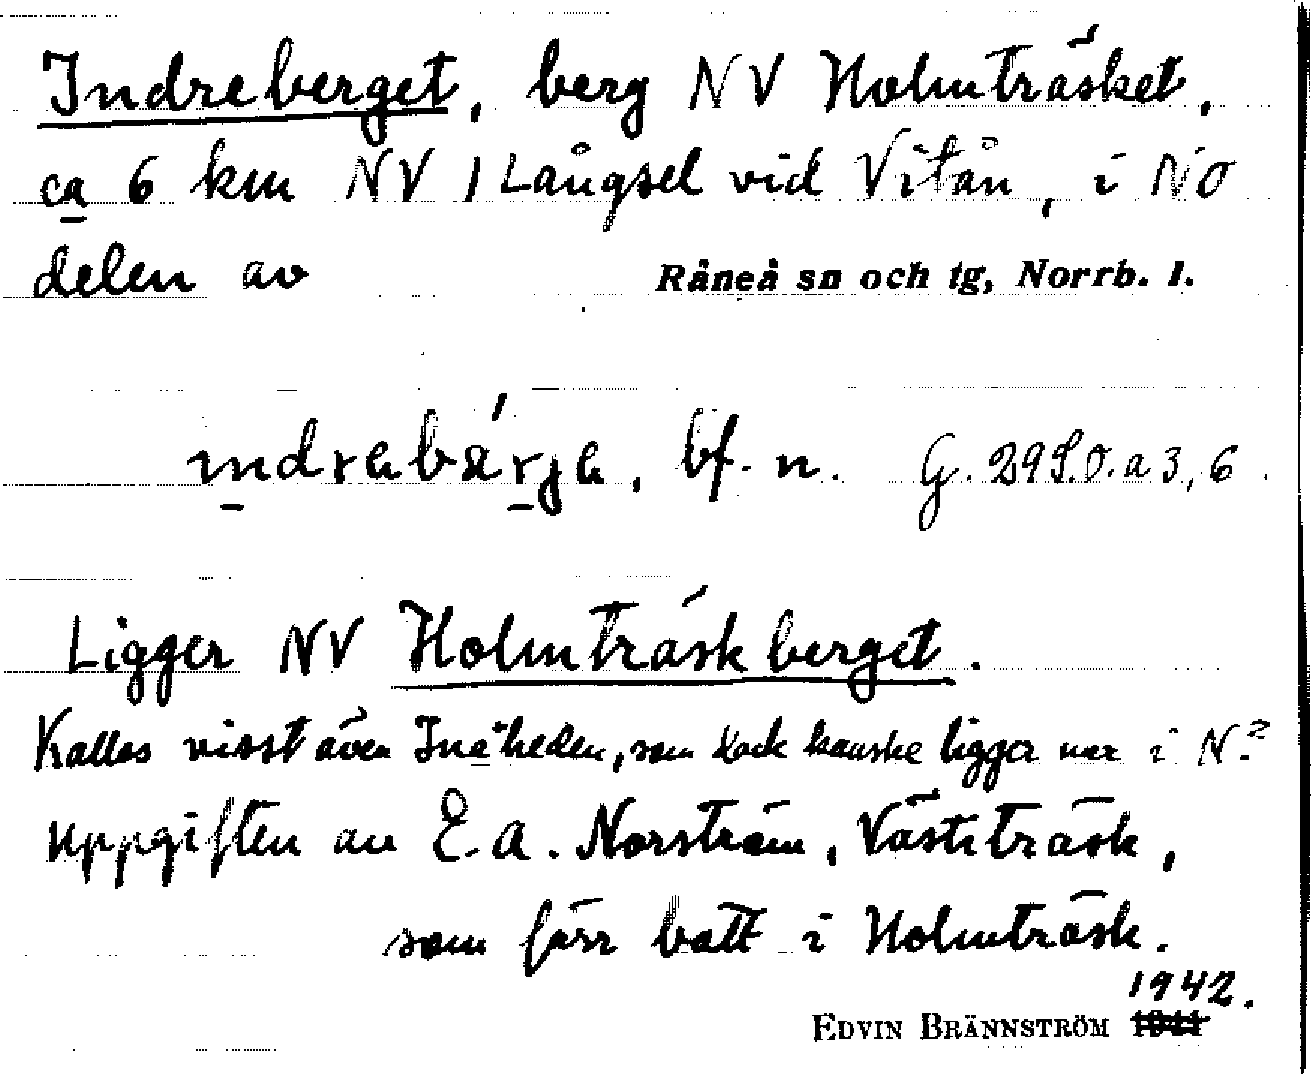 Indreberget, berg NV Holmträsket,
ca 6 km NV / Långsel vid Vitån, i NO
delen av Råneå sn och tg, Norrb. l.
ındrabärja, bf. n. G. 29 S.O. a 3, 6.
Ligger NV Holmträskberget.
Kallas visst även Ineheden, som dock kanske ligger mer i N.?
uppgiften av E. A. Norström, Västiträsk,
som förr bott i Holmträsk.
1942.
EDVIN BRÄNNSTRÖM 1941